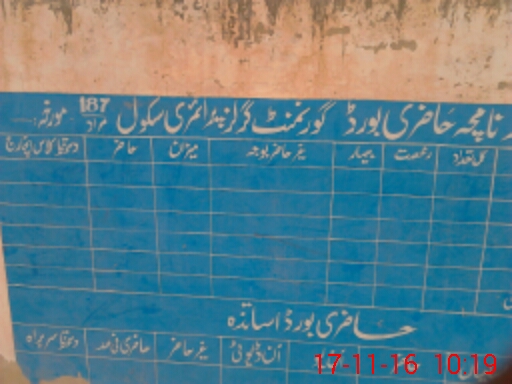 روزنامچہ حاضری بورڈ گورنمنٹ گرلز پرائمری سکول 187 مراد مورخہ
کل تعداد رخصت بیمار غیر حاضر بوجہ میزان حاضر دستخط کلاس انچارج
حاضری بورڈ اساتذہ
آن ڈیوٹی غیر حاضر حاضری فی صد دستخط سربراہ
17-11-16 10:19